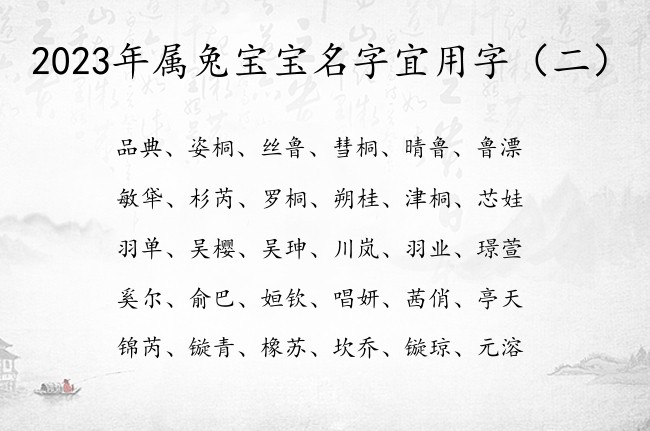 2023年属兔宝宝名字宜用字（二）
品典、姿桐、丝鲁、彗桐、晴鲁、鲁漂
敏牮、杉芮、罗桐、朔桂、津桐、芯娃
羽单、吴樱、吴珅、川岚、羽业、璟萱
奚尔、俞巴、姮钦、唱妍、茜俏、亭天
锦芮、镟青、橡苏、坎乔、镟琼、元溶